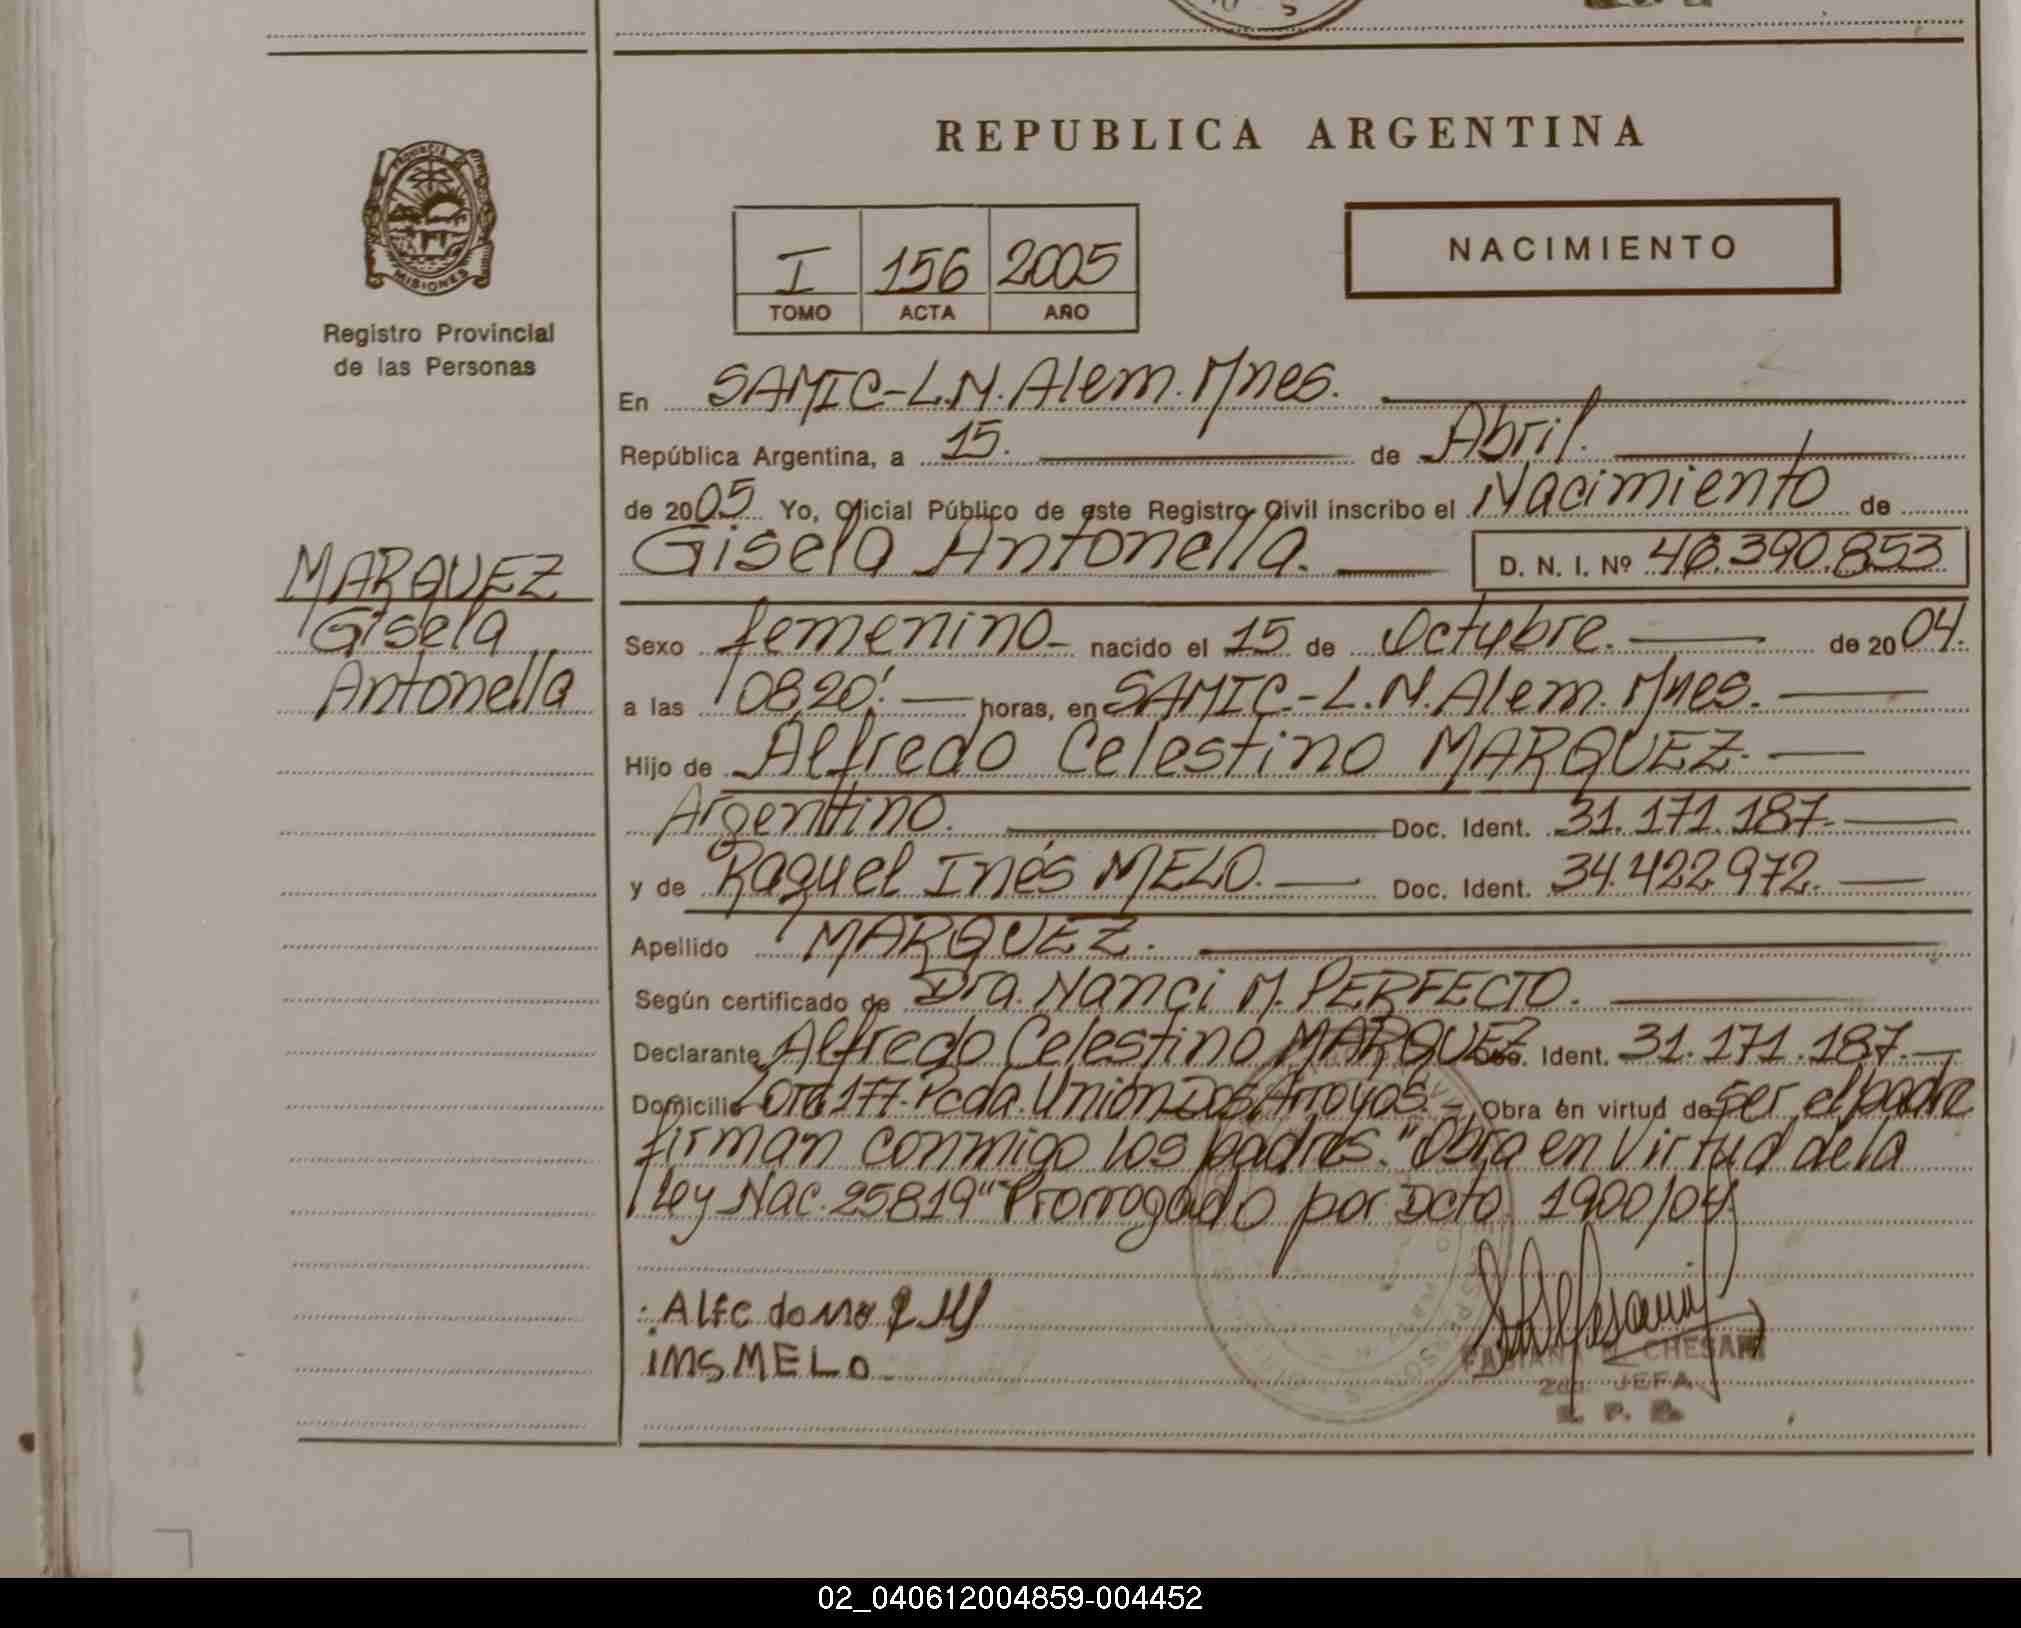 REPUBLICA ARGENTINA
PROVINCIA DE
MISIONES
Registro Provincial
de las Personas
I 156 2005
TOMO ACTA AÑO
NACIMIENTO
En SAMIC-L.N.Alem.Mnes.
República Argentina, a 15. de Abril.
de 2005 Yo, Oficial Público de este Registro Civil inscribo el Nacimiento de
Gisela Antonella. D. N. I. Nº 46.390.853
MARQUEZ
Gisela
Antonella
Sexo femenino- nacido el 15 de Octubre. de 2004.
a las 0820' horas, en SAMIC.-L.N.Alem.Mnes.
Hijo de Alfredo Celestino MARQUEZ.
Argentino. Doc. Ident. 31.171.187.
y de Raquel Inés MELO. Doc. Ident. 34.422.972.
Apellido MARQUEZ.
Según certificado de Dra. Nanci M. PERFECTO.
Declarante Alfredo Celestino MARQUEZ Doc. Ident. 31.171.187.
Domicilio 177-Pcda.Unión Dos Arroyos. Obra en virtud de ser el padre
firman conmigo los padres. "Obra en Virtud de la
Ley Nac. 25819" Prorrogado por Dcto 1900/04
INSMELO
CHESANI
2da. JEFA
R. P. P.
02_040612004859-004452